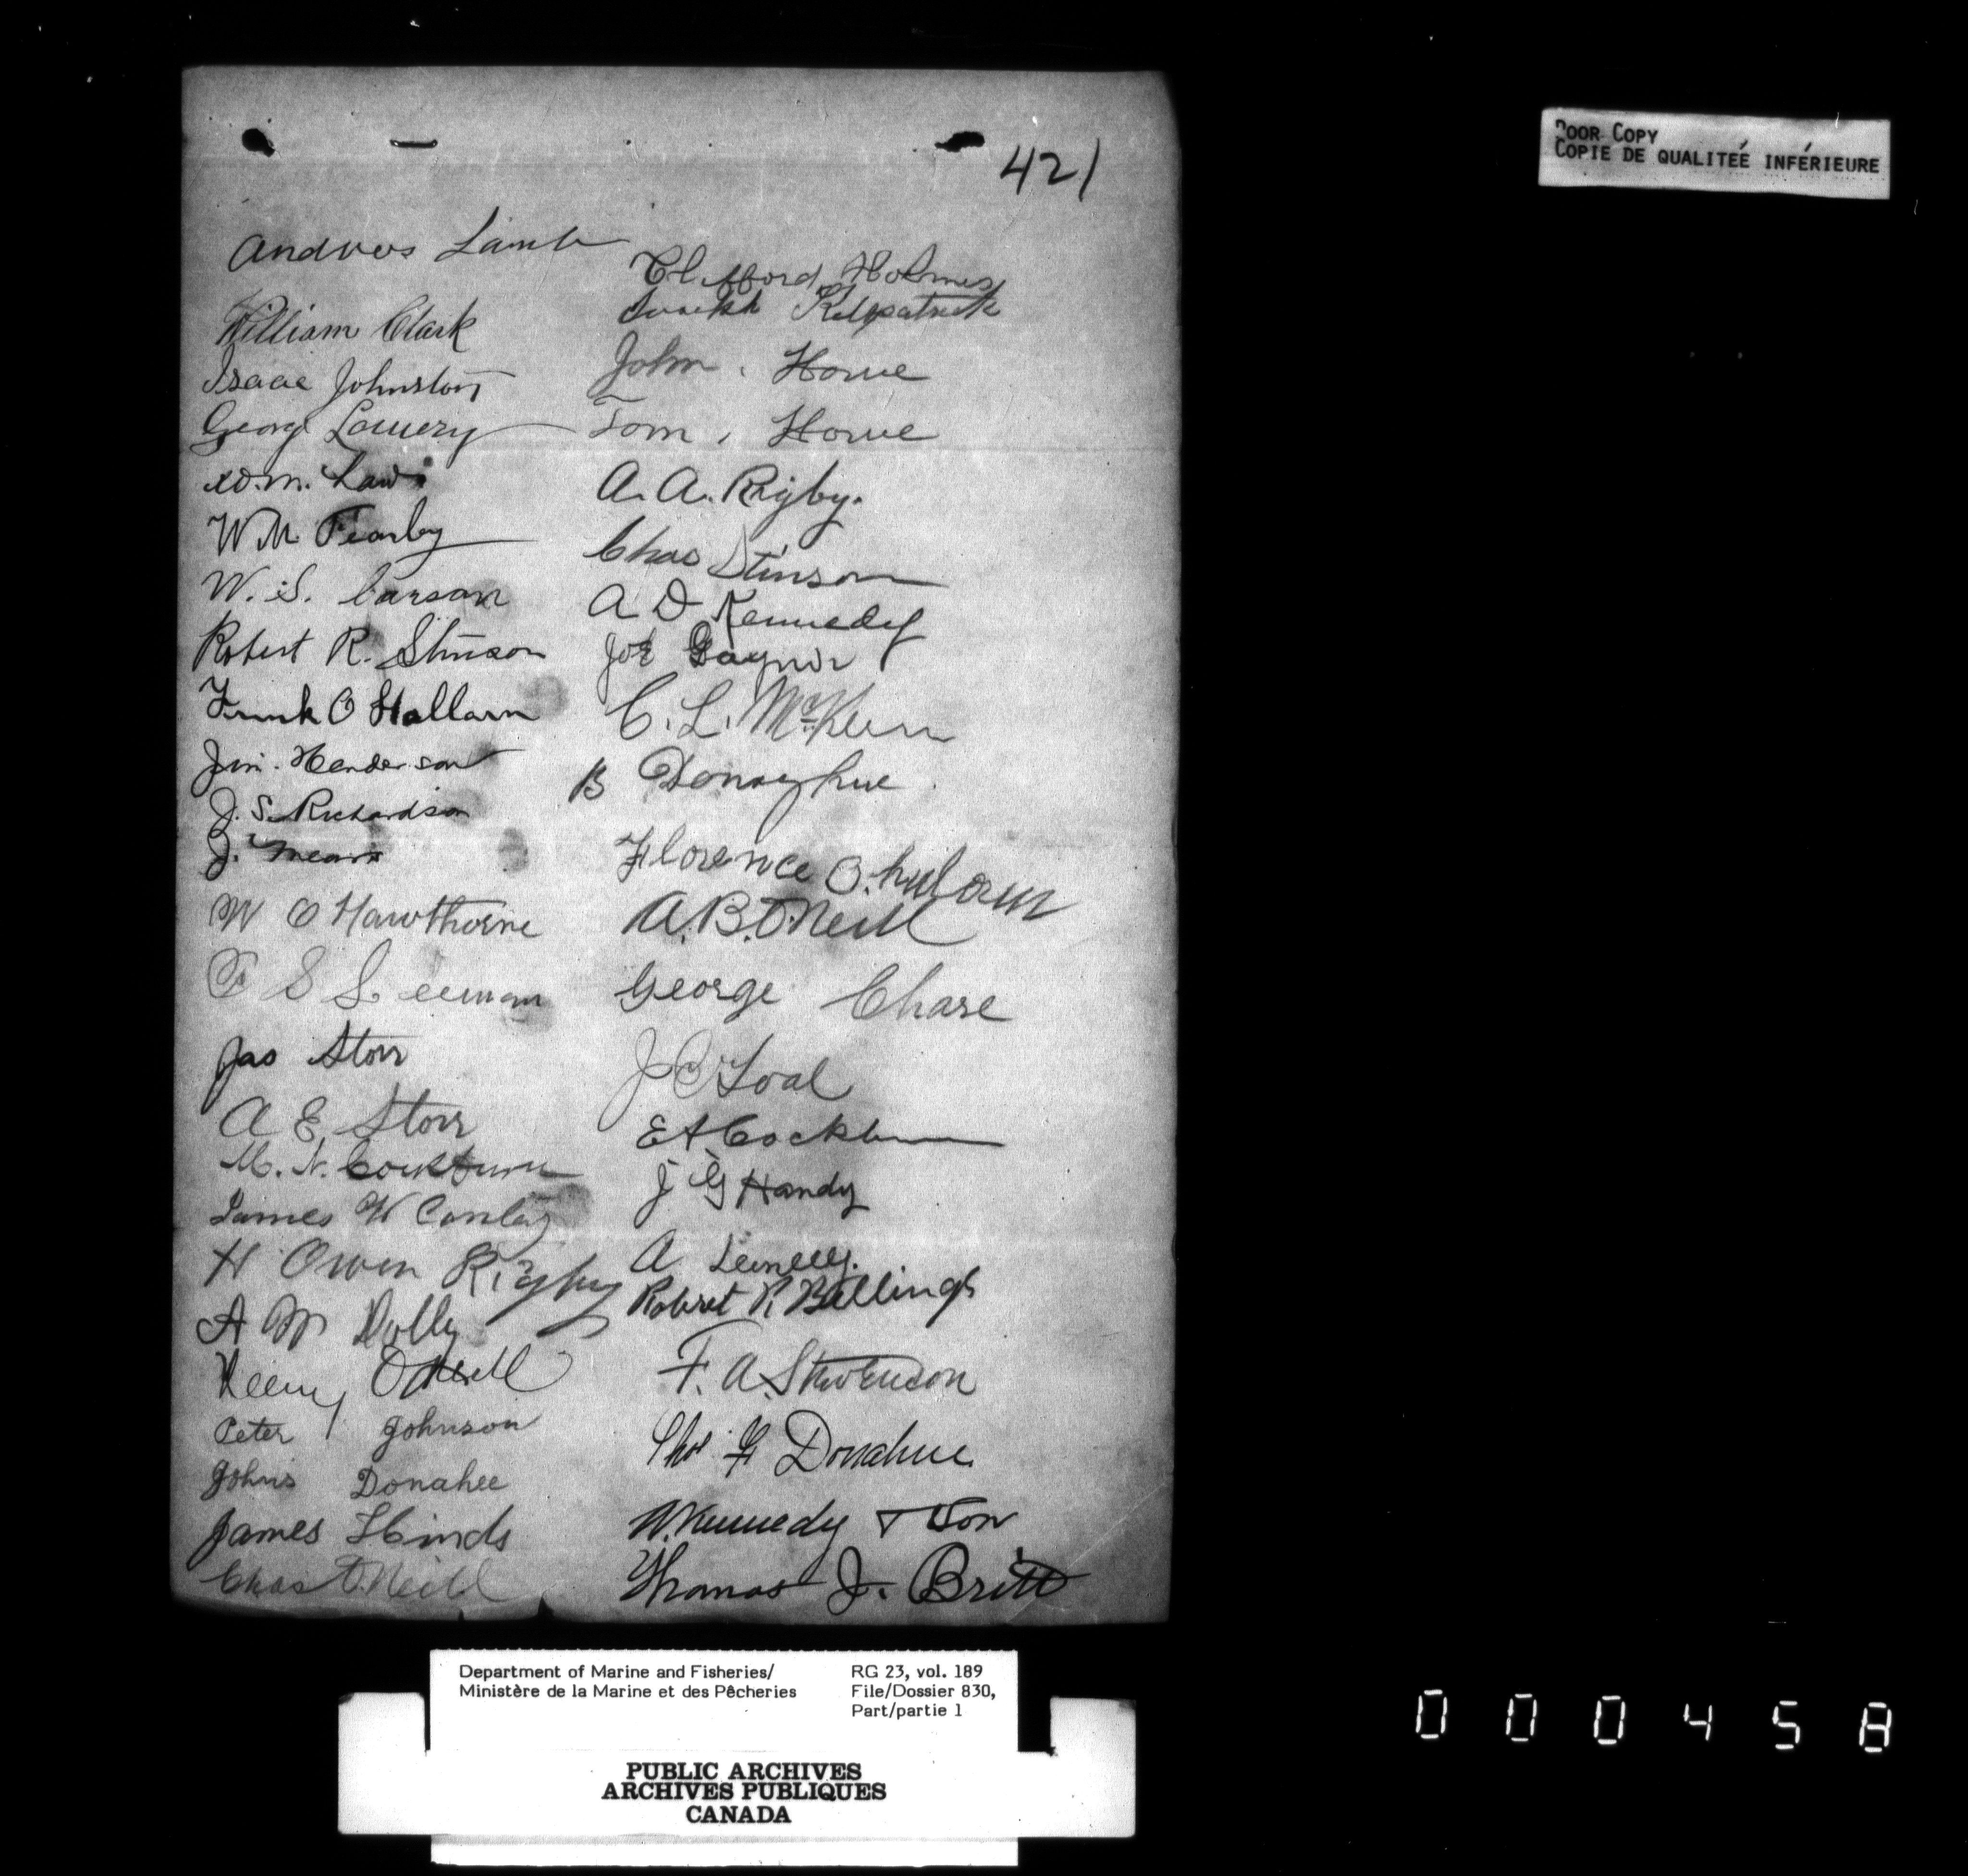 421
Andrews Lamb
William Clark
Isaac Johnston
Georg Lowery
Wm. Law
W M Fearby
W. S. Carson
Robert R. Stinson
Frank O Hallarn
Jim. Henderson
J. S. Richardson
J. Mears
W O Hawthorne
S
Jas Storr
A E Storr
M. N. Cockburn
James W Conlay
H Owen Rigby
A M Dolly
Henry O Neill
Peter Johnson
Johns Donahee
James Hinds
Chas O.Neill
Clifford Holmes
Kilpatrick
John. Howe
Tom, Howe
A. A. Rigby.
Chas Stinson
A D Kennedy
Joe Gaynor
C. L. McKeen
B Donoghue
Florence O.
A. B. O'Neill
George Chase
J C Toal
E A Cockburn
J G Handy
A
Robert R Billings
F. A. Stevenson
Donahue
W. Kennedy & Son
Thomas J. Britt
POOR COPY
COPIE DE QUALITEÉ INFÉRIEURE
Department of Marine and Fisheries/
Ministère de la Marine et des Pêcheries
RG 23, vol. 189
File/Dossier 830,
Part/partie 1
PUBLIC ARCHIVES
ARCHIVES PUBLIQUES
CANADA
000458